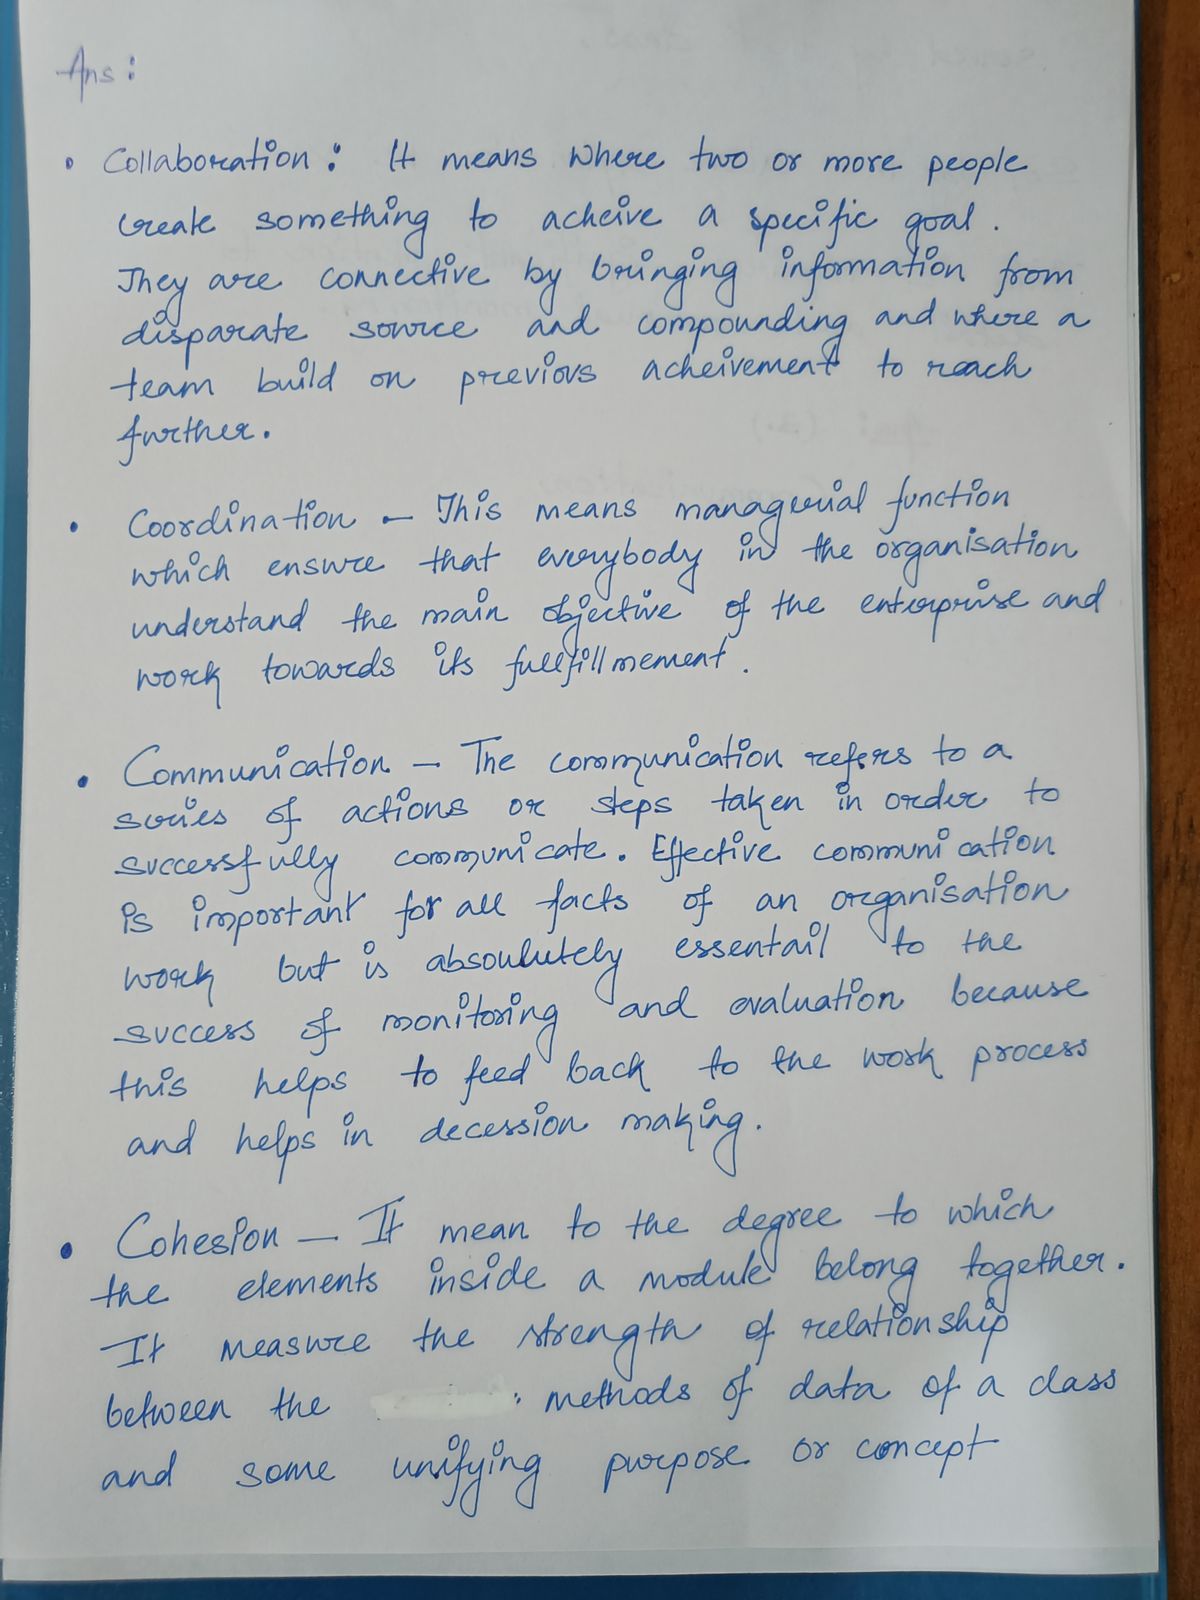 Ans:
• Collaboration: It means where two or more people
create something to acheive a specific goal.
They are connective by bringing information from
disparate source and compounding and where a
team build on previous acheivement to reach
further.
• Coordination – This means managerial function
which ensure that everybody in the organisation
understand the main objective of the enterprise and
work towards its fullfillmement.
• Communication – The communication refers to a
series of actions or steps taken in order to
successfully communicate. Effective communication
is important for all facts of an organisation
work but is absoulutely essentail to the
success of monitoring and evaluation because
this helps to feed back to the work process
and helps in decession making.
• Cohesion – It mean to the degree to which
the elements inside a module belong together.
It measure the strength of relationship
between the : methods of data of a class
and some unifying purpose or concept